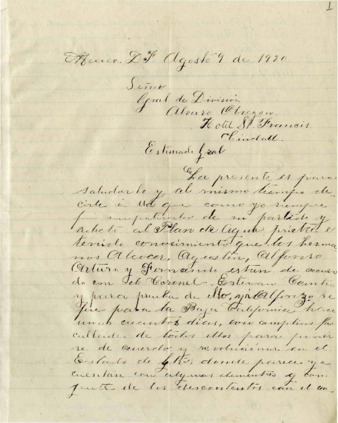 1
Mexico. D. F. Agosto 9 de 1920
Señor
Gral de División
Alvaro Obregon.
Hotel St. Francis
Ciudad.
Estimado Gral
La presente es para
saludarlo y al mismo tiempo de
cirle a Ud que como yo siempre
fui simpatizador de su partido y
adicto al Plan de Agua prieta e
tenido conocimiento que los herma
nos Alcocer, Agustin, Alfonso
Arturo y Fernando estan de acuer
do con el Coronel. Esteban Cantu
y para prueba de ello, ya Alfonzo se
fue para la Baja California hace
unos cuantos dias, con amplias fa
cultades de todos ellos para poner
se de acuerdo y revolucionar en el
Estado de Gto; donde parece ya
cuentan con algunos elementos y con
parte de los descontentos con el an